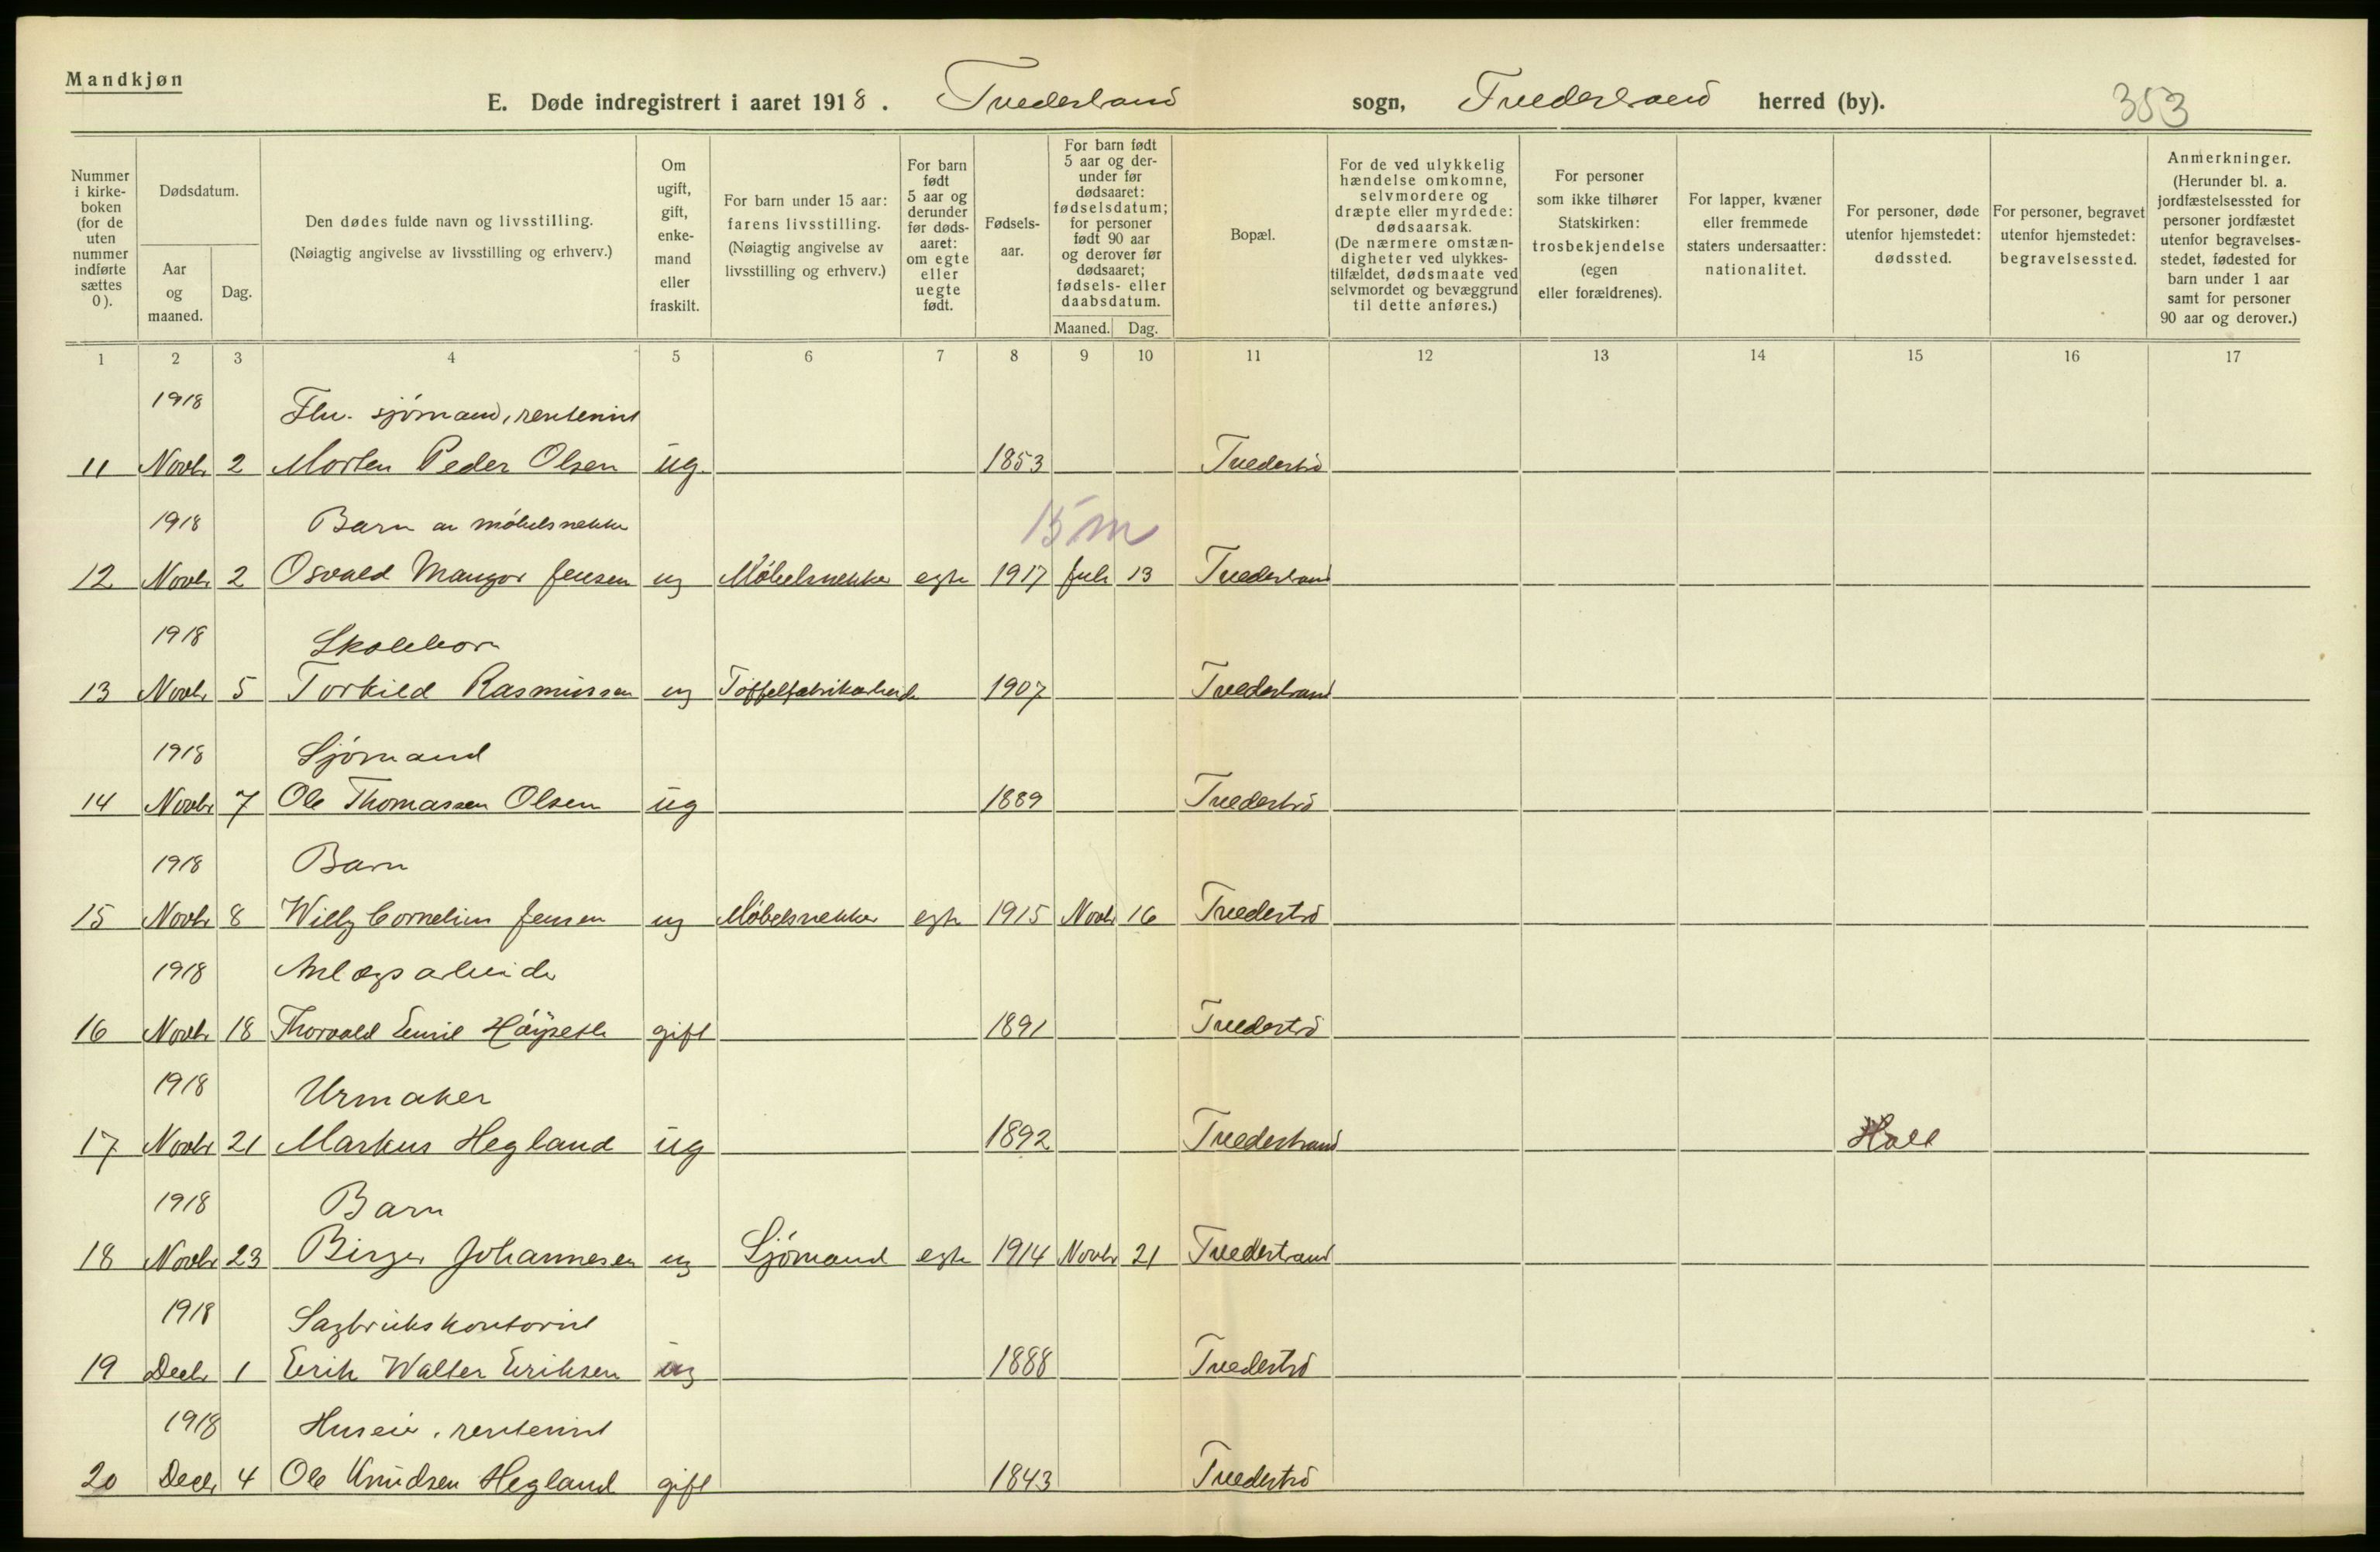 Mandkjøn
E. Døde indregistrert i aaret 1918. Tvedestrand sogn, Tvedestrand herred (by). 353
Nummer i kirkeboken (for de uten nummer indførte sættes 0).
Dødsdatum.
Aar og maaned.
Dag.
Den dødes fulde navn og livsstilling.
(Nøiagtig angivelse av livsstilling og erhverv.)
Om ugift, gift, enkemand eller fraskilt.
For barn under 15 aar: farens livsstilling.
(Nøiagtig angivelse av livsstilling og erhverv.)
For barn født 5 aar og derunder før dødsaaret: om egte eller uegte født.
Fødselsaar.
For barn født 5 aar og derunder før dødsaaret: fødselsdatum; for personer født 90 aar og derover før dødsaaret; fødsels- eller daabsdatum.
Maaned. Dag.
Bopæl.
For de ved ulykkelig hændelse omkomne, selvmordere og dræpte eller myrdede: dødsaarsak.
(De nærmere omstændigheter ved ulykkestilfældet, dødsmaate ved selvmordet og bevæggrund til dette anføres.)
For personer som ikke tilhører Statskirken: trosbekjendelse (egen eller forældrenes).
For lapper, kvæner eller fremmede staters undersaatter: nationalitet.
For personer, døde utenfor hjemstedet: dødssted.
For personer, begravet utenfor hjemstedet: begravelsessted.
Anmerkninger.
(Herunder bl. a. jordfæstelsessted for personer jordfæstet utenfor begravelsesstedet, fødested for barn under 1 aar samt for personer 90 aar og derover.)
1 2 3 4 5 6 7 8 9 10 11 12 13 14 15 16 17
1918 Fhv. sjømand, rentenist
11 Novbr 2 Morten Peder Olsen ug 1853 Tvedestrd
1918 Barn av møbelsnekker 15 m
12 Novbr 2 Osvald Mangor Jensen ug Møbelsnekker egte 1917 Juli 13 Tvedestrand
1918 Skolebarn
13 Novbr 5 Torkild Rasmussen ug Tøffelfabrikarbeider 1907 Tvedestrand
1918 Sjømand
14 Novbr 7 Ole Thomassen Olsen ug 1889 Tvedestrd
1918 Barn
15 Novbr 8 Willy Cornelius Jensen ug Møbelsnekker egte 1915 Novbr 16 Tvedestrd
1918 Anlægsarbeider
16 Novbr 18 Thorvald Emil gift 1891 Tvedestrd
1918 Urmaker
17 Novbr 21 Markus Hegland ug 1892 Tvedestrand
1918 Barn
18 Novbr 23 Birger Johannesen ug Sjømand egte 1914 Novbr 21 Tvedestrand
1918 Sagbrukskontorist
19 Decbr 1 Erik Walter Eriksen ug 1888 Tvedestrd
1918 Huseier, rentenist
20 Decbr 4 Ole Knudsen Hegland gift 1843 Tvedestrd